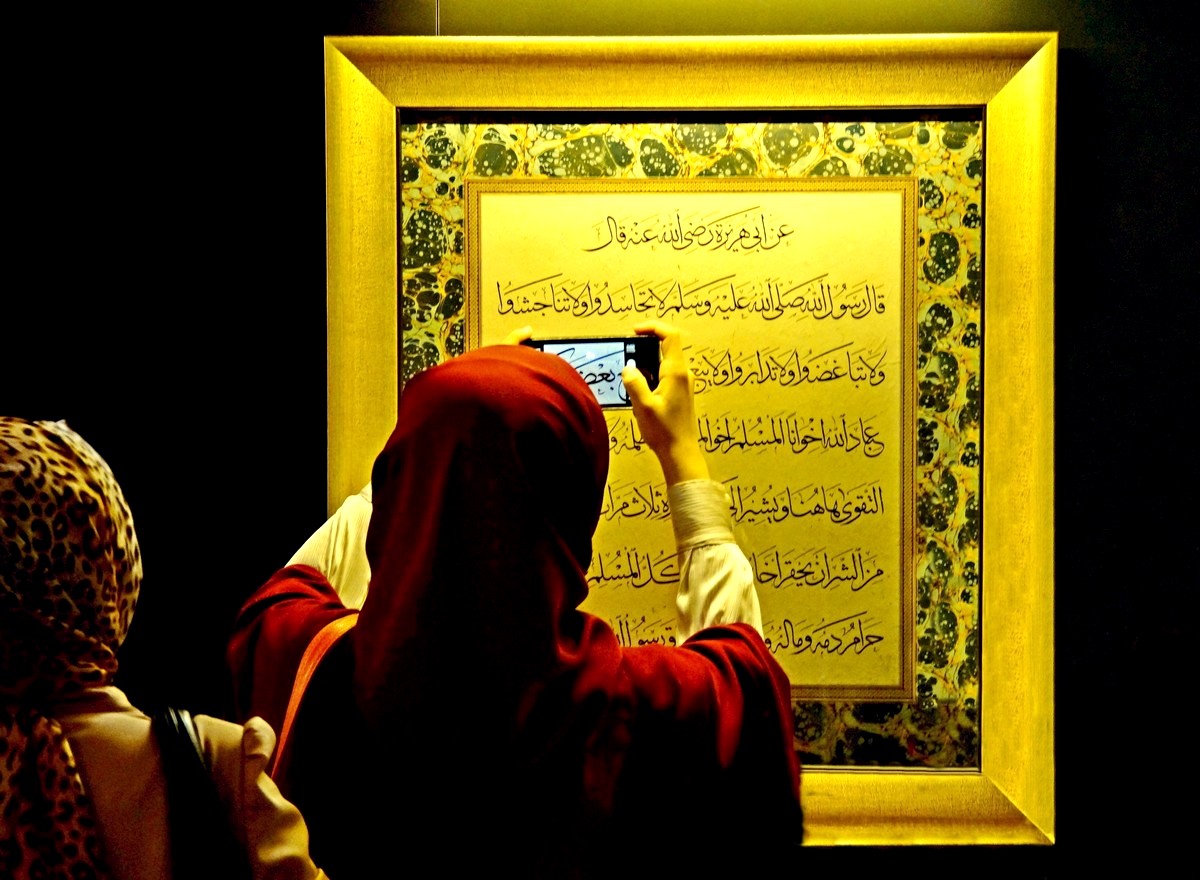 عن ابي هريرة رضي الله عنه قال
قال رسول الله صلى الله عليه وسلم لا تحاسدوا ولا تناجشوا
ولا تباغضوا ولا تدابروا ولا يبع بعض
عباد الله اخوانا المسلم اخو
التقوى هاهنا ويشير الى ثلاث مرات
من الشر ان يحقر اخا كل المسلم
حرام دمه وماله و رسول